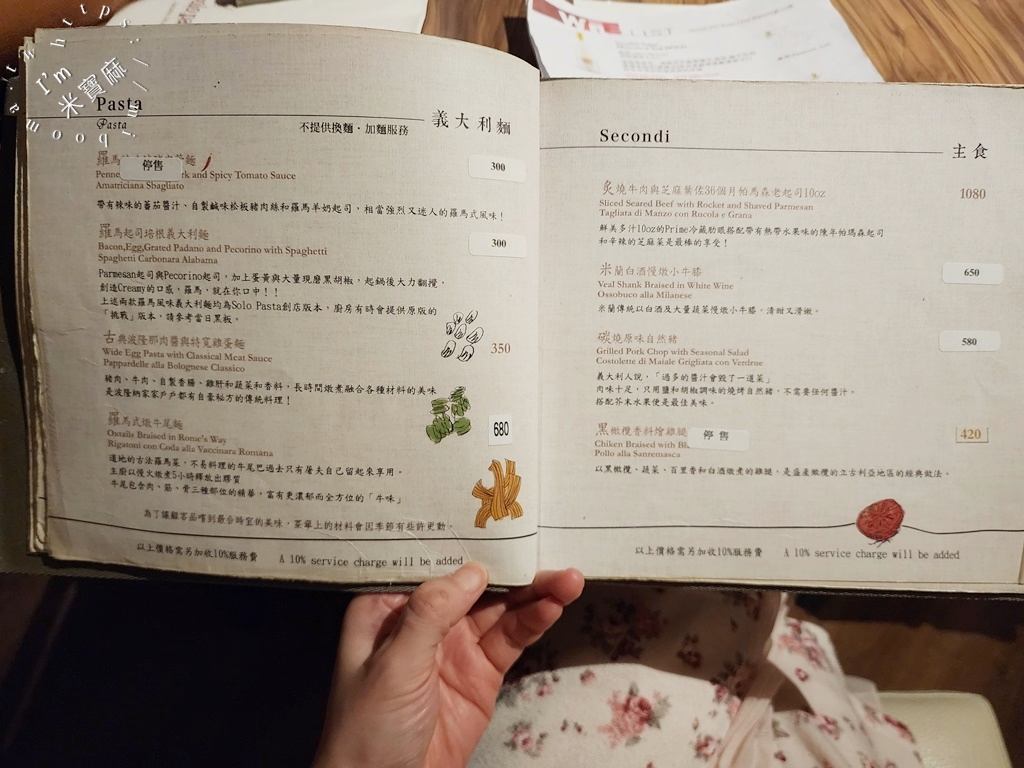 https
I'm
米寶麻
Pasta
Pasta
義大利麵
不提供換麵・加麵服務
羅馬
停售
麵
300
Penne
rk and Spicy Tomato Sauce
Amatriciana Sbagliato
帶有辣味的蕃茄醬汁、自製鹹味松板豬肉絲和羅馬羊奶起司,相當強烈又迷人的羅馬式風味!
羅馬起司培根義大利麵
300
Bacon,Egg,Grated Padano and Pecorino with Spaghetti
Spaghetti Carbonara Alabama
Parmesan起司與Pecorino起司,加上蛋黃與大量現磨黑胡椒,起鍋後大力翻攪,
創造Creamy的口感,羅馬,就在你口中!!
上述兩款羅馬風味義大利麵均為Solo Pasta創店版本、廚房有時會提供原版的
「挑戰」版本,請參考當日黑板。
古典波隆那肉醬與特寬雞蛋麵
350
Wide Egg Pasta with Classical Meat Sauce
Pappardelle alla Bolognese Classico
豬肉、牛肉、自製香腸、雞肝和蔬菜和香料,長時間燉煮融合各種材料的美味
是波隆納家家戶戶都有自豪秘方的傳統料理!
羅馬式燉牛尾麵
680
Oxtails Braised in Rome's Way
Rigatoni con Coda alla Vaccinara Romana
道地的古法羅馬菜,不易料理的牛尾巴過去只有屠夫自己留起來享用。
主廚以慢火燉煮5小時釋放出膠質
牛尾包含肉、筋、骨三種部位的精華。富有更濃郁而全方位的「牛味」
為了讓顧客品嚐到最合時宜的美味,菜單上的材料會因季節有些許更動。
以上價格需另加收10%服務費 A 10% service charge will be added
LIST
Secondi
主食
炙燒牛肉與芝麻葉佐36個月帕馬森老起司10oz
1080
Sliced Seared Beef with Rocket and Shaved Parmesan
Tagliata di Manzo con Rucola e Grana
鮮美多汁10oz的Prime冷藏肋眼搭配帶有熱帶水果味的陳年帕瑪森起司
和辛辣的芝麻菜是最棒的享受!
米蘭白酒慢燉小牛膝
650
Veal Shank Braised in White Wine
Ossobuco alla Milanese
米蘭傳統以白酒及大量蔬菜慢燉小牛膝,清甜又滑嫩。
碳燒原味自然豬
580
Grilled Pork Chop with Seasonal Salad
Costolette di Maiale Grigliata con Verdrue
義大利人說,「過多的醬汁會毀了一道菜」
肉味十足,只用鹽和胡椒調味的燒烤自然豬,不需要任何醬汁。
搭配芥末水果便是最佳美味。
黑橄欖香料燴雞腿
停售
420
Chiken Braised with Bl
Pollo alla Sanremasca
以黑橄欖、蔬菜、百里香和白酒燉煮的雞腿,是盛產橄欖的立古利亞地區的經典做法。
以上價格需另加收10%服務費 A 10% service charge will be added